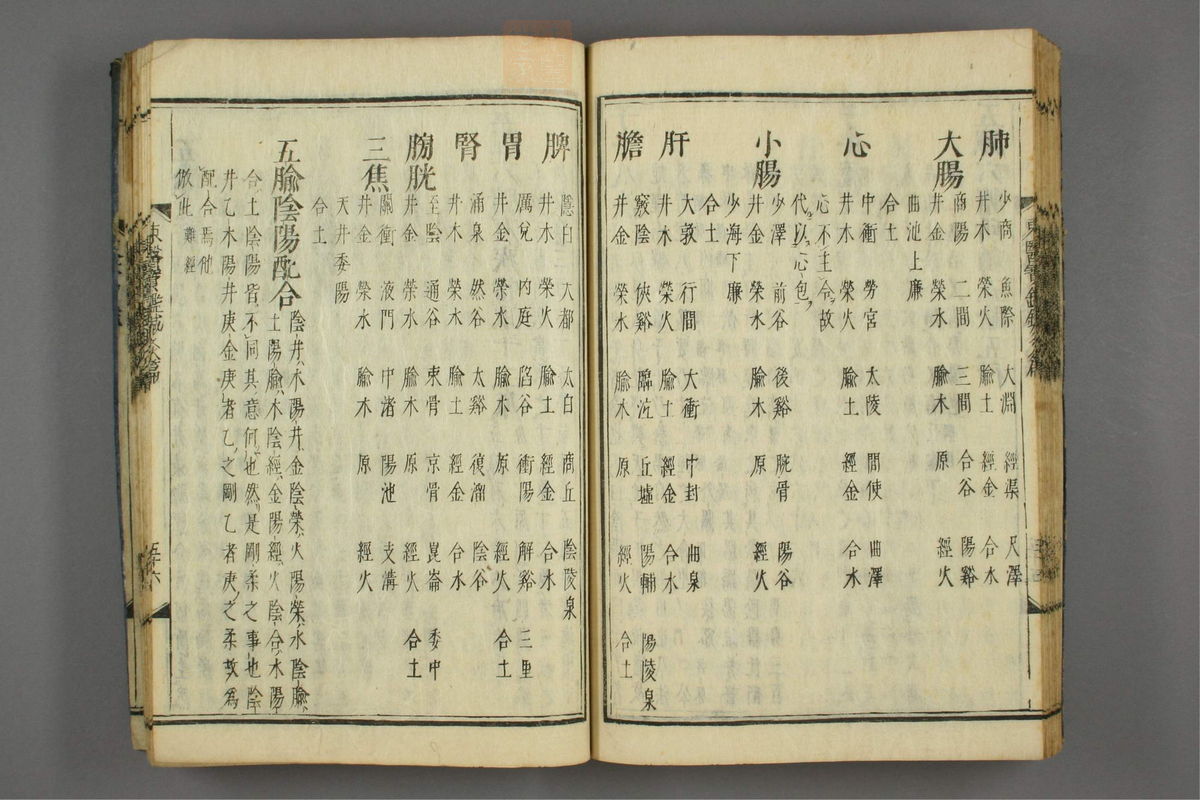 肺
少商 魚際 大淵 經渠 尺澤
井木 滎火 腧土 經金 合水
大腸
商陽 二間 三間 合谷 陽谿
井金 滎水 腧木 原 經火
曲池上廉
合土
心
中衝 勞宮 太陵 間使 曲澤
井木 滎火 腧土 經金 合水
心不主令故
代以心包
小腸
少澤 前谷 後谿 腕骨 陽谷
井金 滎水 腧木 原 經火
少海下廉
合土
肝
大敦 行間 大衝 中封 曲泉
井木 滎火 腧土 經金 合水
膽
竅陰 俠谿 臨泣 丘墟 陽輔 陽陵泉
井金 滎水 腧木 原 經火 合土
脾
隱白 大都 太白 商丘 陰陵泉
井木 滎火 腧土 經金 合水
胃
厲兌 内庭 陷谷 衝陽 解谿 三里
井金 滎水 腧木 原 經火 合土
腎
涌泉 然谷 太谿 復溜 陰谷
井木 滎火 腧土 經金 合水
膀胱
至陰 通谷 束骨 京骨 崑崙 委中
井金 滎水 腧木 原 經火 合土
三焦
關衝 液門 中渚 陽池 支溝
井金 滎水 腧木 原 經火
天井委陽
合土
五腧陰陽配合
陰井木陽井金陰滎火陽滎水陰腧
土陽腧木陰經金陽經火陰合水陽
合土陰陽皆不同其意何也然是剛柔之事也陰
井乙木陽井庚金庚者乙之剛乙者庚之柔故為
配合焉他
倣此難經
東醫寶鑑鍼灸篇
五十六